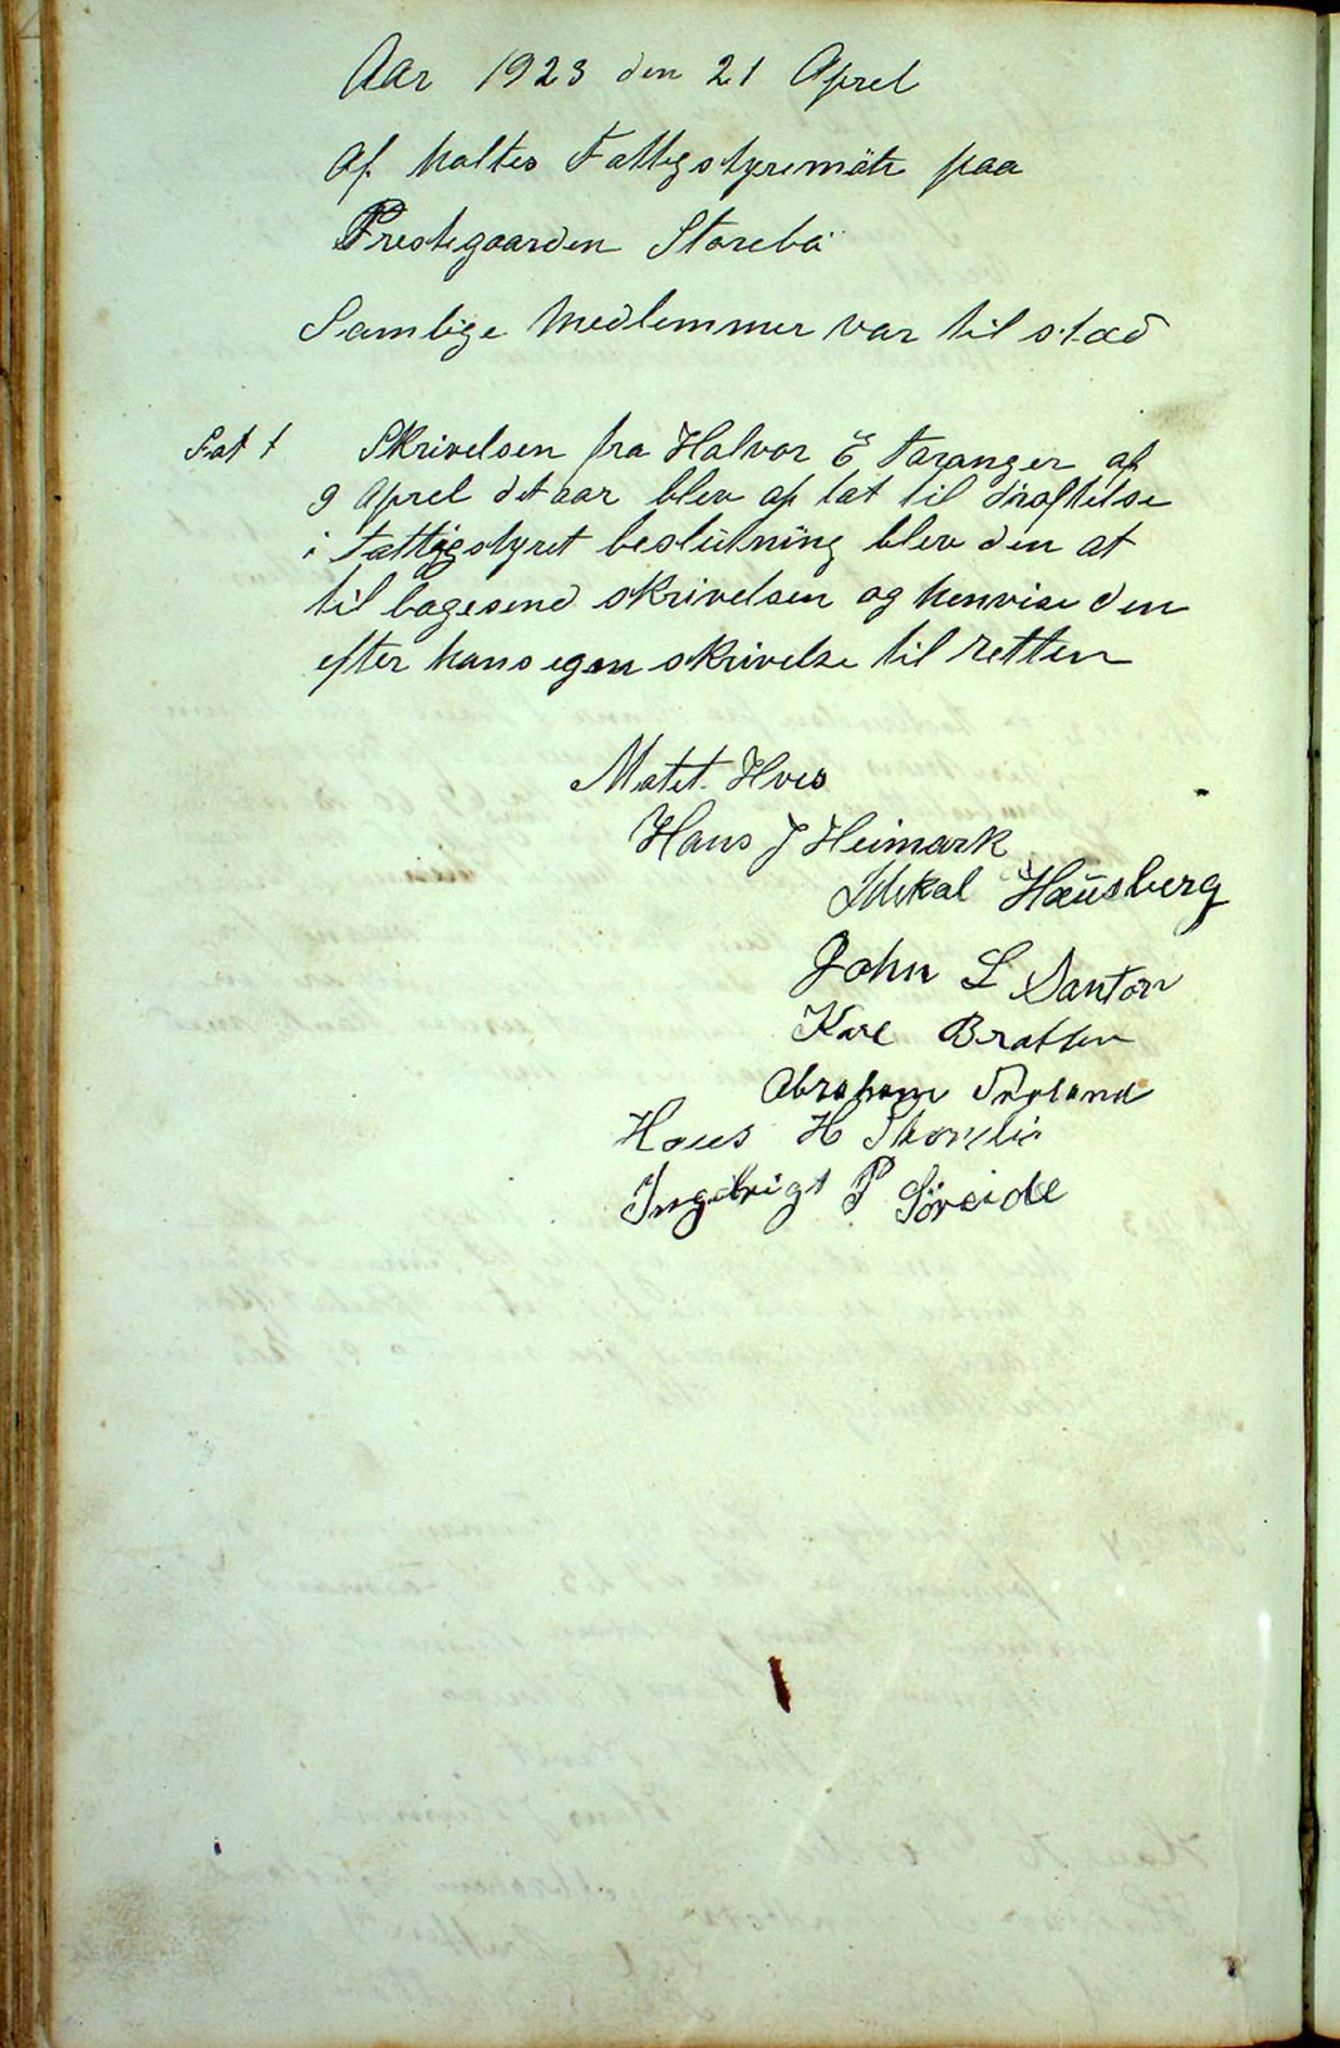 Aar 1923 den 21 Aprel
Af holtes Fattigstyremöte paa
Prestegaarden Storebö
Samlige Medlemmer var til stæd
Sat 1 Skrivelsen fra Halvor E Taranger af
9 Aprel det aar blev op tat til dröftelse
i Fattigstyret beslutning blev den at
til bagesend skrivelsen og henvise den
efter hans egen skrivelse til retten
Hans J Heimark
Hausberg
John L
Karl Bratten
Abraham
Hans H
Ingebrigt P Söreide